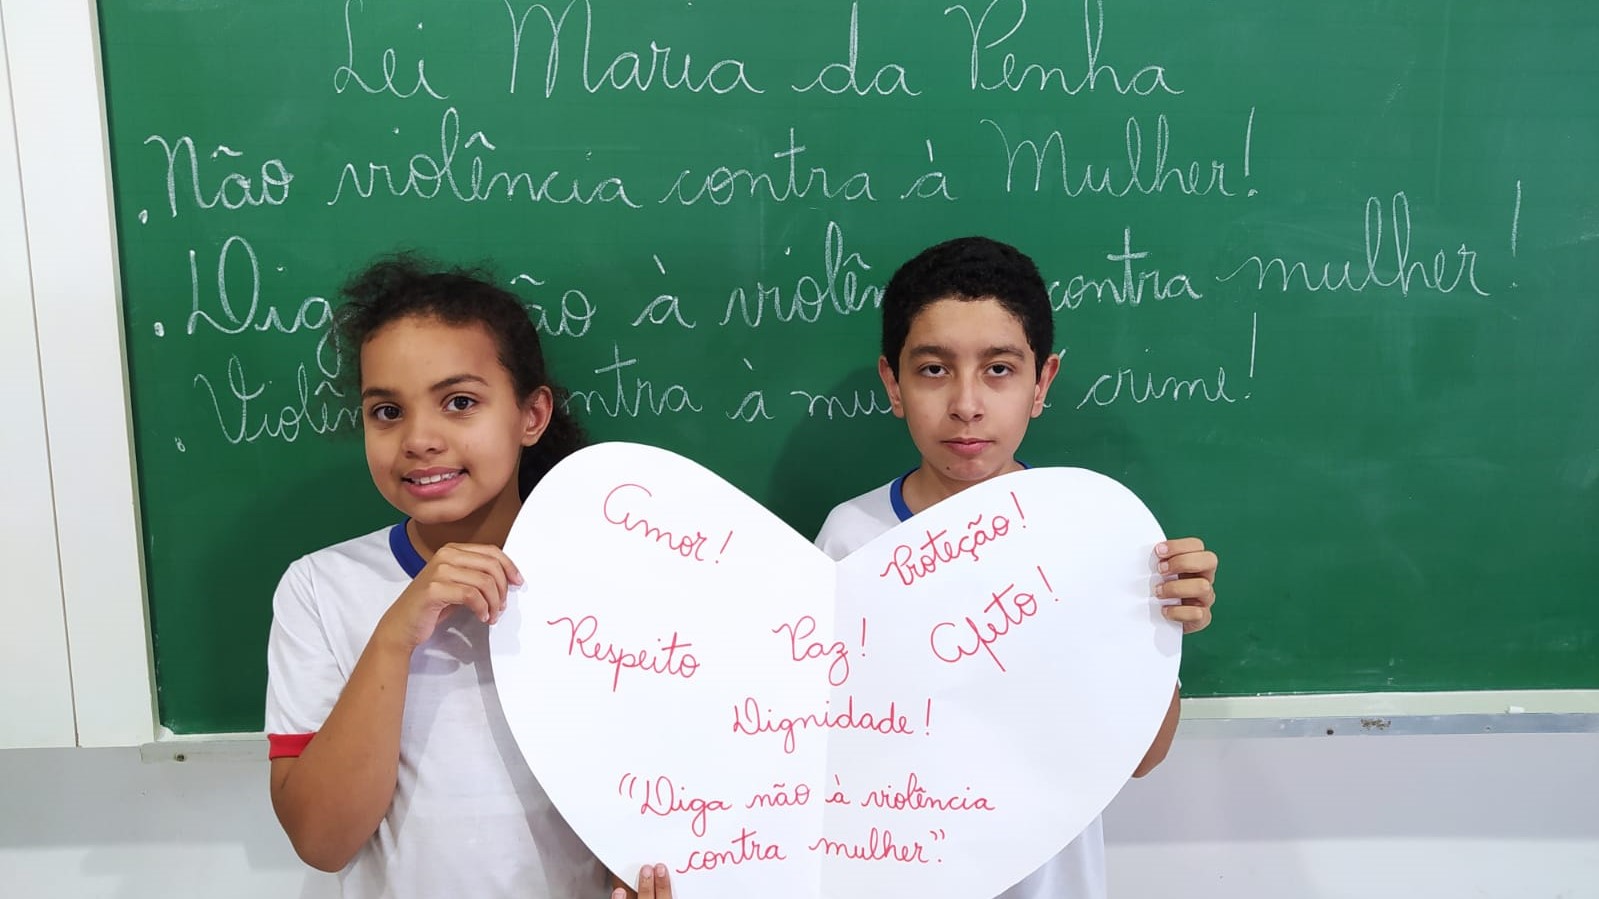 Lei Maria da Penha
. Não violência contra à Mulher!
. Diga não à violên contra mulher!
. Violên contra à mu é crime!
Amor!
Proteção!
Respeito
Paz!
Afeto!
Dignidade!
"Diga não à violência
contra mulher".